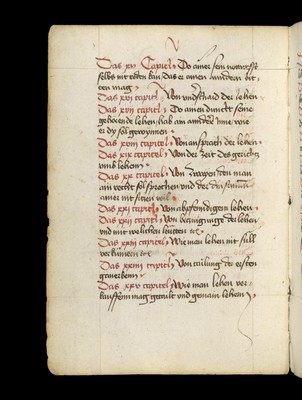 V
Das xv Capitel Do ainer sein notturfft
selbs nit reden kan das er ainen anndern bit-
ten mag
Das xvi capitel Von underschaid der lehen
Das xvii capitel Do ainen dunckt seine
geborende lehen hab am annder Inne wie
er dy sol gewynnen
Das xviii capitel Von ansprach der lehen
Das xix capitel Von der zeit des gerichtz
umb lehenn
Das xx capitel Von man
am rechtt sol sprechen und der
ainer nit sitzen will
Das xxi capitel Von absterndigen lehen
Das xxii capitel Von der lehen
und mit welichen leuten etc
Das xxiii capitel Wie man lehen nit sull
verkumern etc
Das xxiiii capitel Von tailung der ersten
ganerben
Das xxv capitel Wie man lehen ver-
kauffenn mag getailt und gemain lehenn